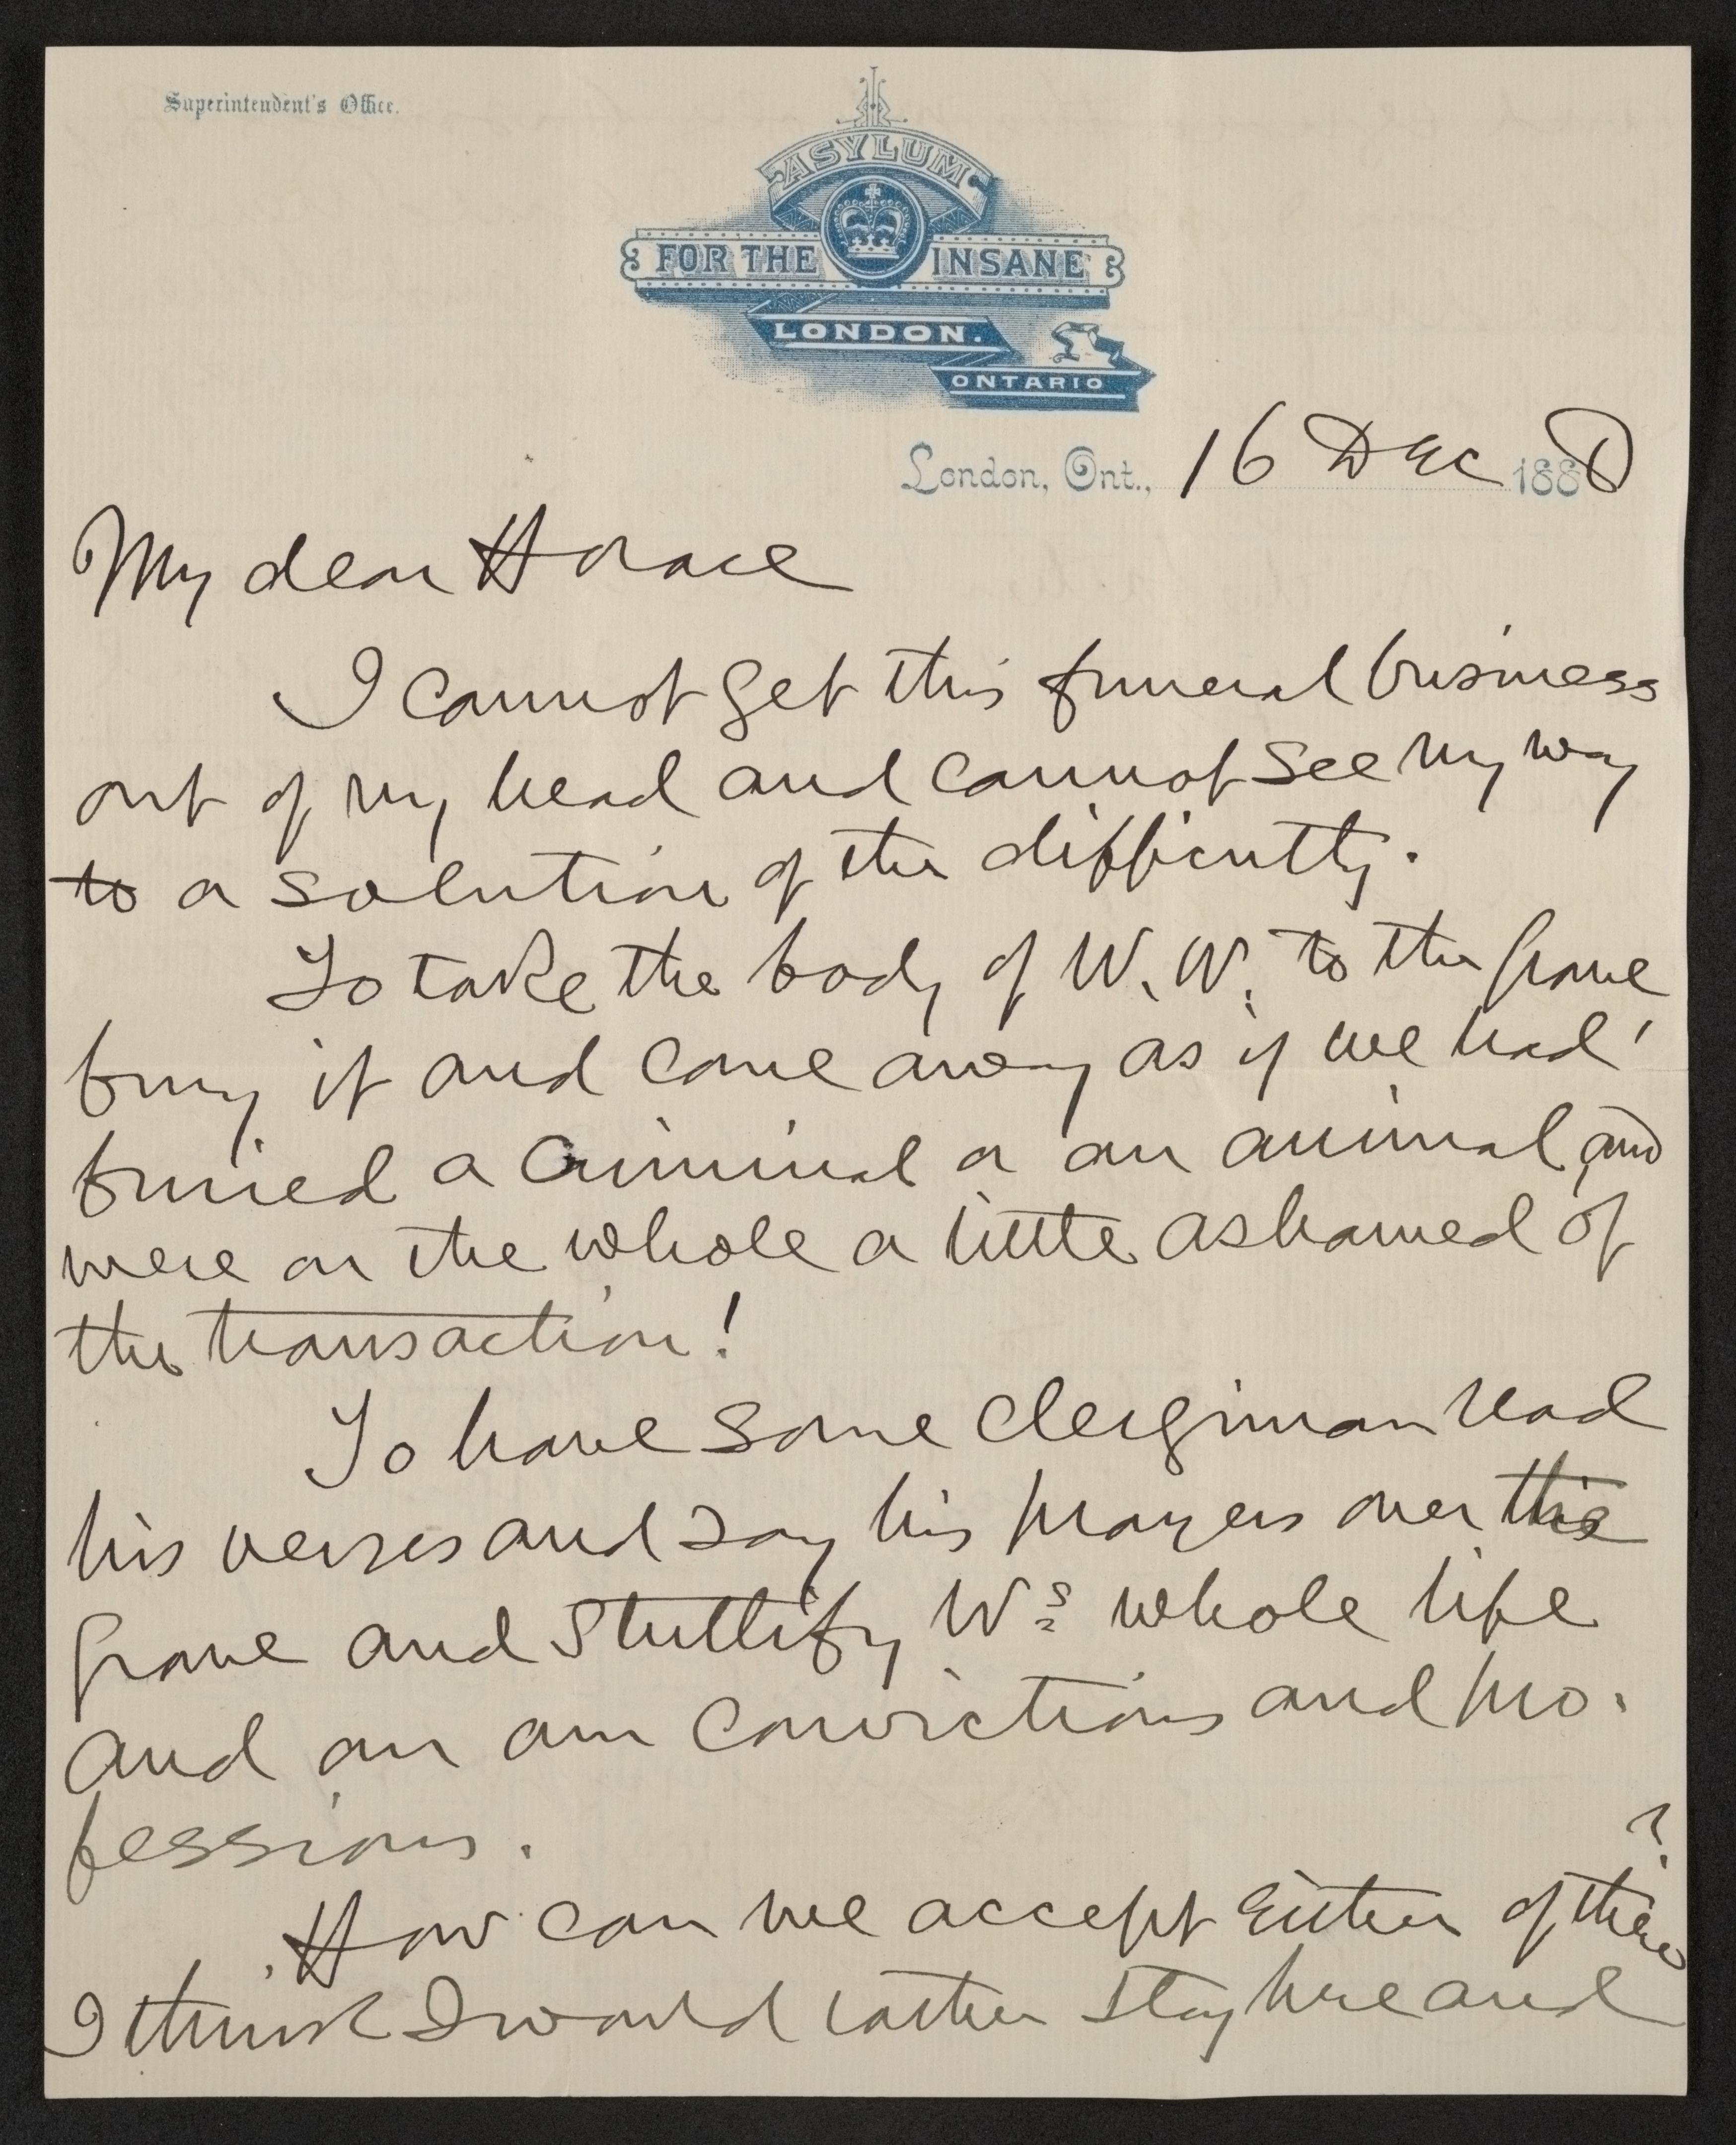 Superintendent's Office.
ASYLUM
FOR THE INSANE
LONDON.
ONTARIO
London, Ont., 16 Dec 1888
My dear Horace
I cannot get this funeral business
out of my head and cannot see my way
to a solution of the difficulty.
To take the body of W. W. to the grave
bury it and come away as if we had
buried a criminal or an animal and
were on the whole a little ashamed of
the transaction!
To have some clergiman read
his verses and say his prayers over the
grave and stultify W's whole life
and our own convictions and pro-
fessions.
How can we accept either of these?
I think I would rather stay here and